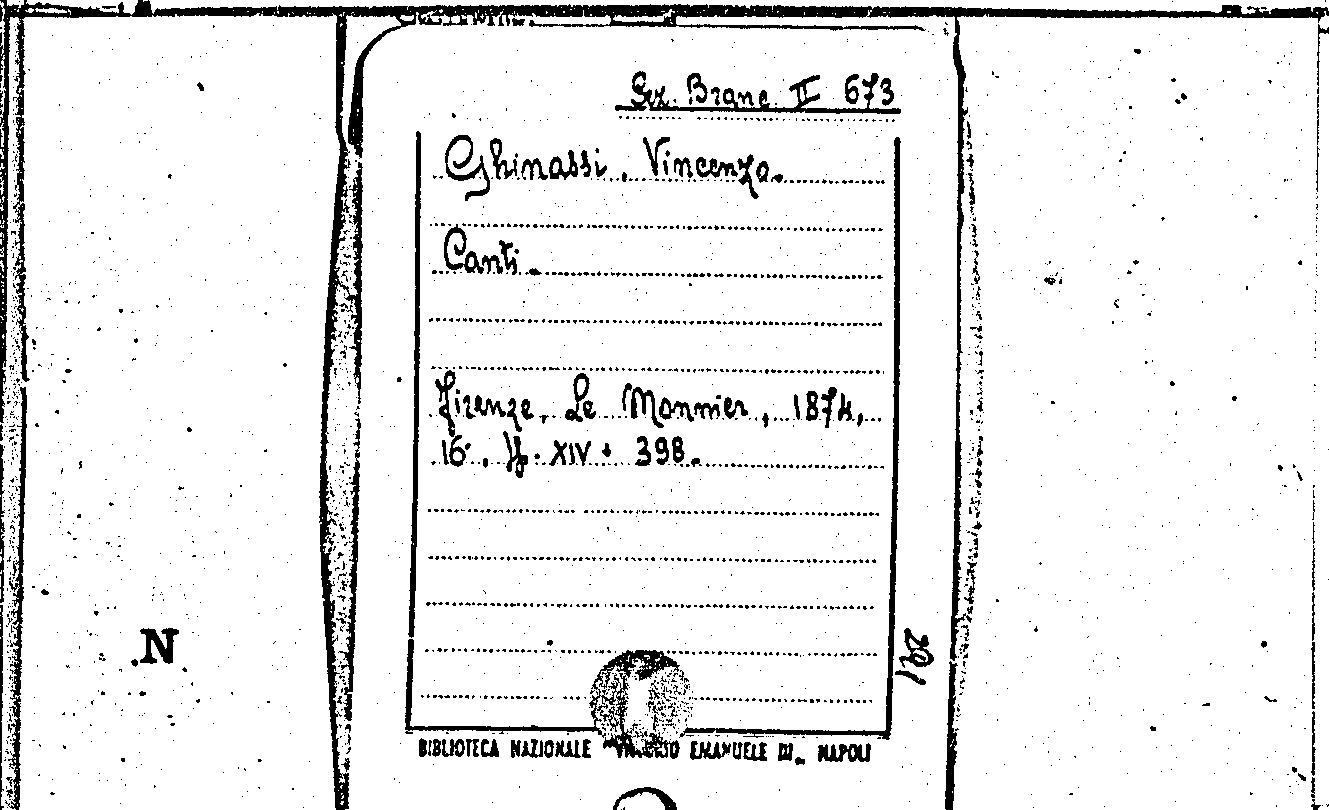 Sez. Branc. II 673
Ghinassi, Vincenzo.
Canti.
Firenze, Le Monnier, 1874,
16°, pp. XIV + 398.
N
BIBLIOTECA NAZIONALE "VITTORIO EMANUELE III„ NAPOLI